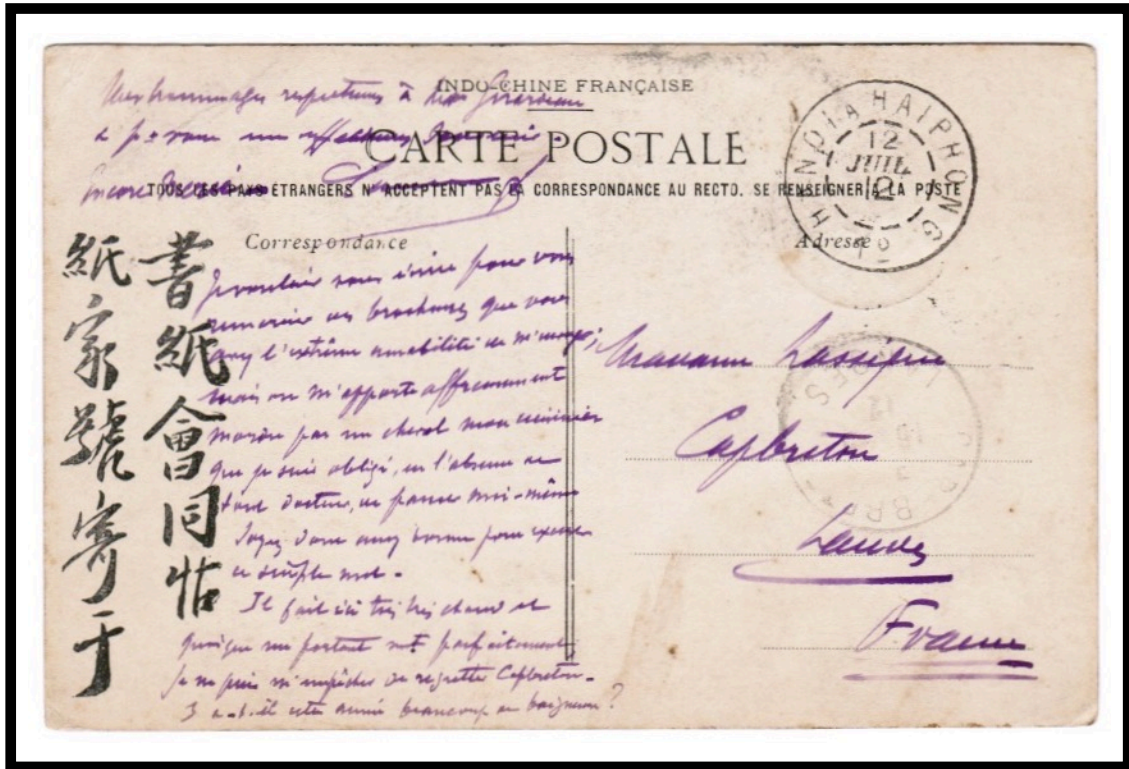 INDO-CHINE FRANÇAISE
CARTE POSTALE
TOUS LES PAYS ÉTRANGERS N'ACCEPTENT PAS LA CORRESPONDANCE AU RECTO. SE RENSEIGNER A LA POSTE
HAIPHONG
12
JUIL
12
Mes hommages respectueux à
Encore merci
Correspondance
Adresse
書紙會同帖
紙家號寄于
Je voulais vous écrire pour vous
remercier des brochures que vous
avez l'extrême amabilité de m'envoyer,
mais on m'apporte affreusement
mordu par un cheval mon cuisinier
que je suis obligé, en l'absence de
tout docteur, de panser moi-même
Soyez donc assez bonne pour excuser
ce simple mot.
Il fait ici très très chaud et
quoique me portant parfaitement
je ne puis m'empêcher de regretter Capbreton.
Y a-t-il cette année beaucoup de baigneurs?
Madame
Capbreton
Landes
France